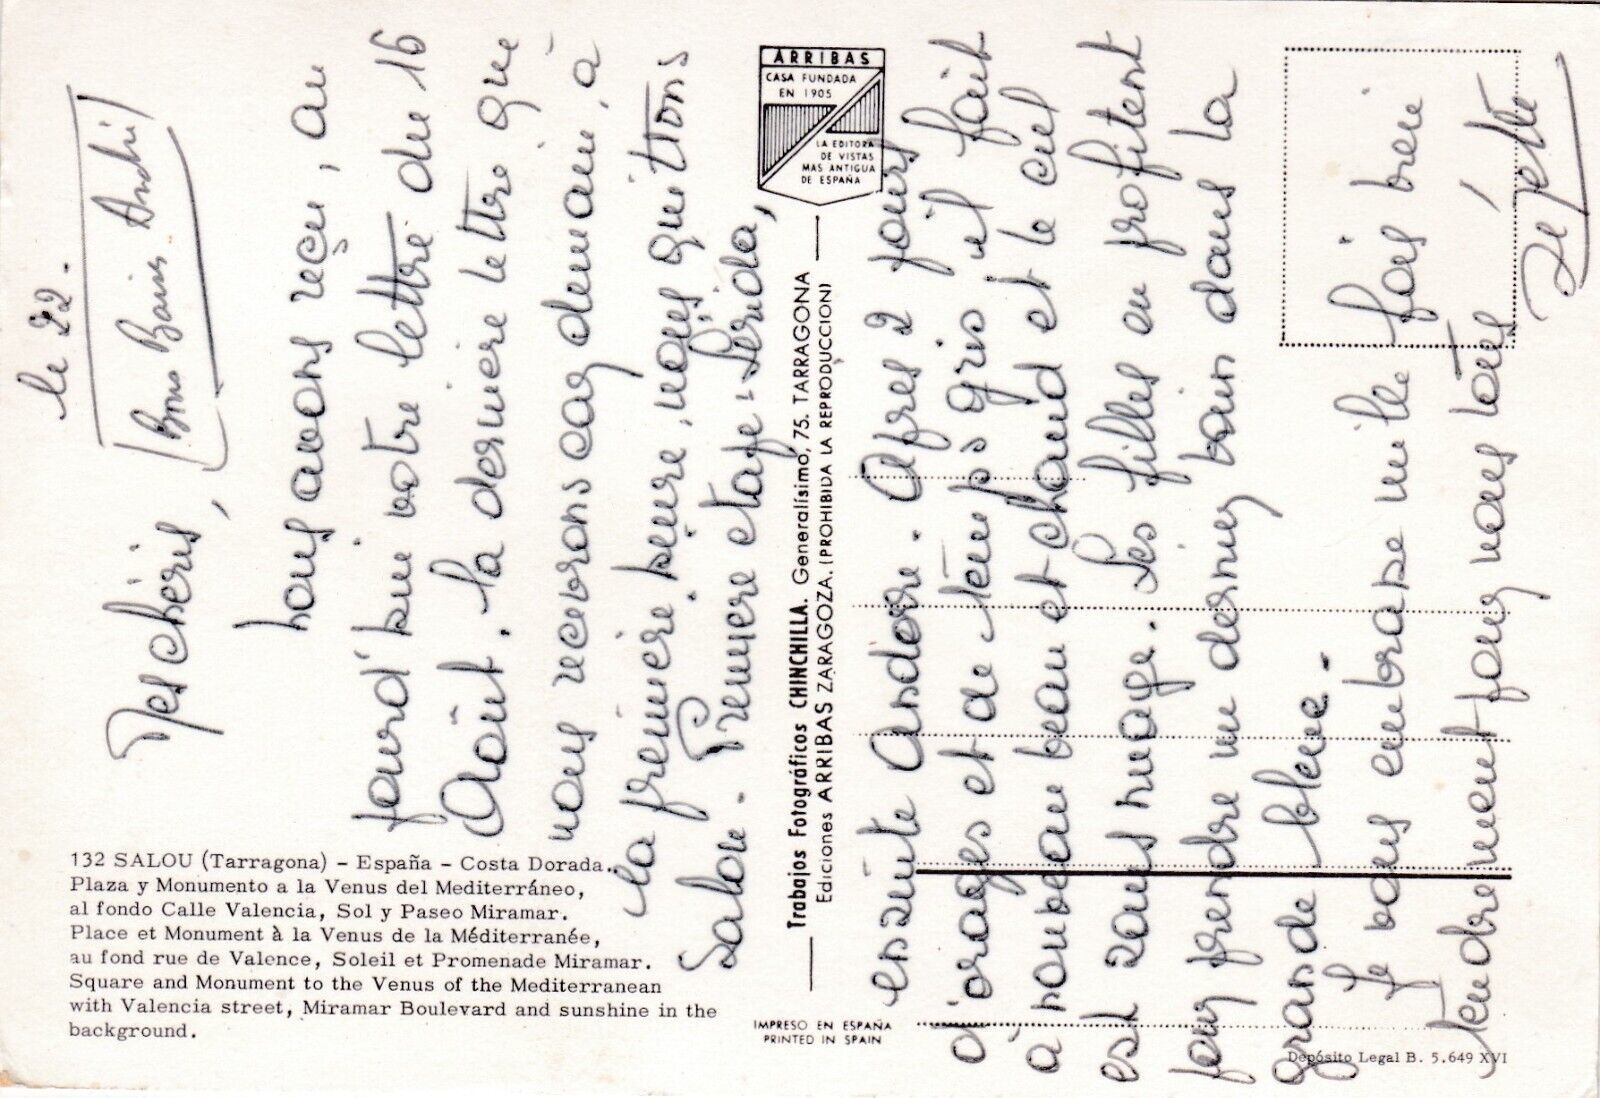 le 22.
Mes chéris,
Bons Baisers André
nous avons reçu, au
jourd'hui votre lettre du 16
Août. la dernière lettre que
nous recevrons car demain, à
la première heure, nous quittons
Salou. Première étape: Lérida,
ensuite Andorre. Après 2 jours
d'orages et de temps gris il fait
à nouveau beau et chaud et le ciel
est sans nuage. Les filles en profitent
pour prendre un dernier bain dans la
grande bleue.
Je vous embrasse mille fois bien
tendrement pour nous tous,
132 SALOU (Tarragona) - España - Costa Dorada.
Plaza y Monumento a la Venus del Mediterráneo,
al fondo Calle Valencia, Sol y Paseo Miramar.
Place et Monument à la Venus de la Méditerranée,
au fond rue de Valence, Soleil et Promenade Miramar.
Square and Monument to the Venus of the Mediterranean
with Valencia street, Miramar Boulevard and sunshine in the
background.
ARRIBAS
CASA FUNDADA
EN 1905
LA EDITORA
DE VISTAS
MAS ANTIGUA
DE ESPAÑA
Trabajos Fotográficos CHINCHILLA. Generalísimo, 75. TARRAGONA
Ediciones ARRIBAS ZARAGOZA. (PROHIBIDA LA REPRODUCCION)
IMPRESO EN ESPAÑA
PRINTED IN SPAIN
Depósito Legal B. 5.649 XVI